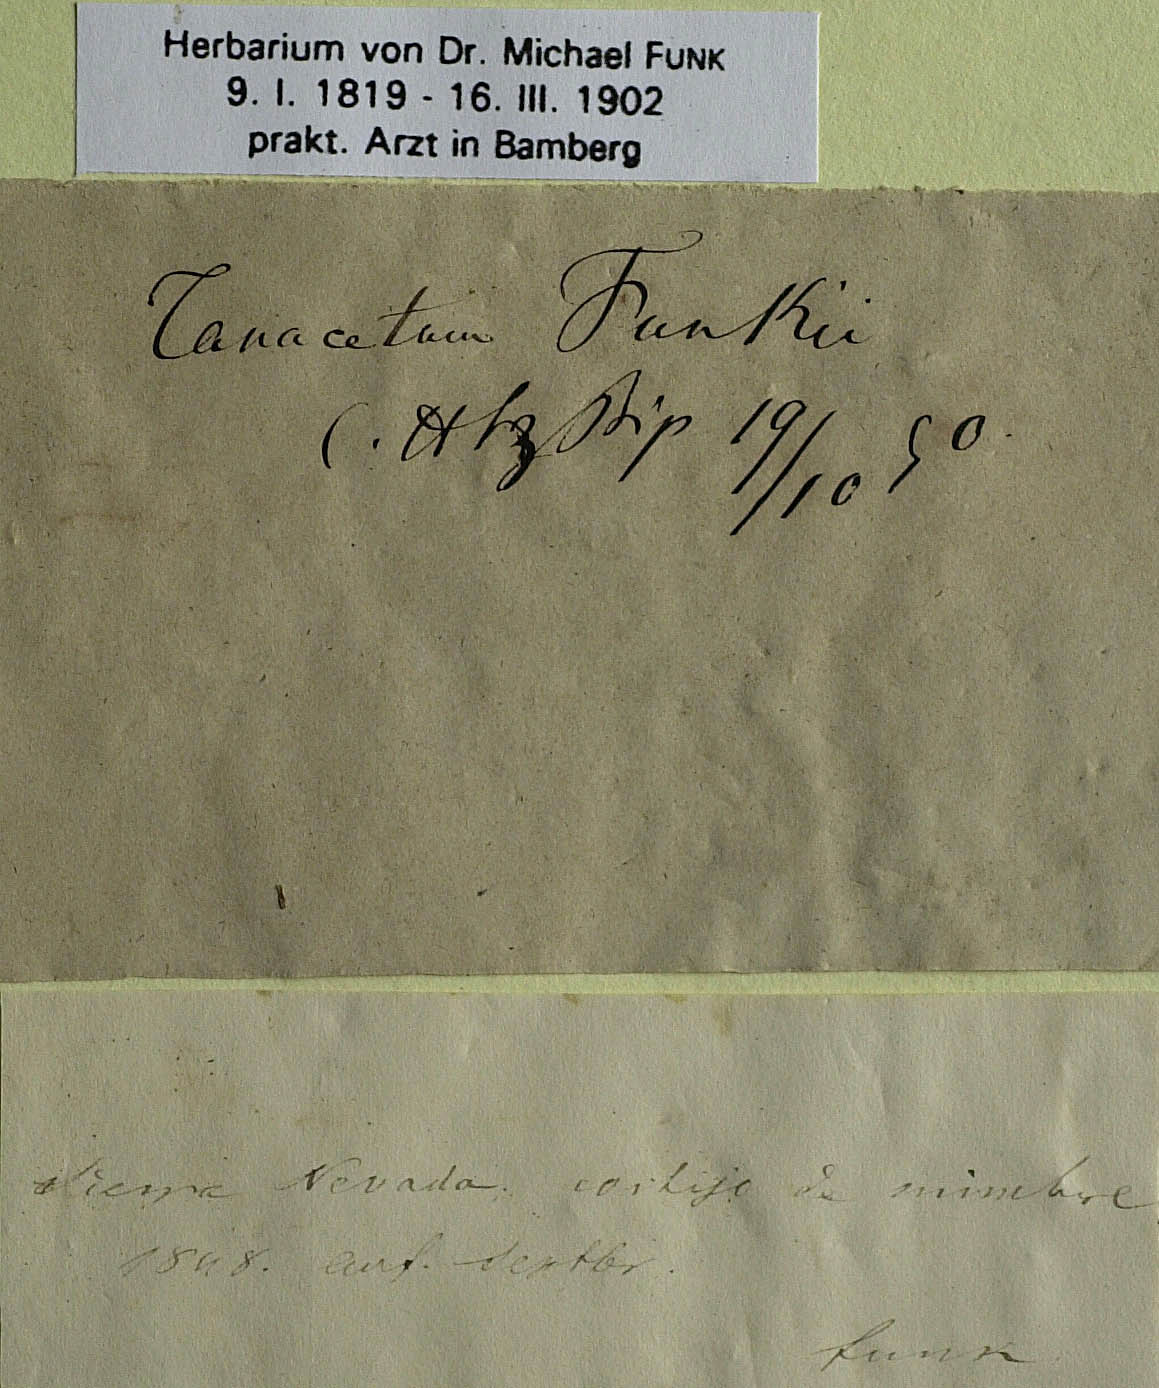 Herbarium von Dr. Michael FUNK
9. I. 1819 - 16. III. 1902
prakt. Arzt in Bamberg
Tanacetum Funkii
C. H. Htz Bip 19/10 50.
Sierra Nevada. cortijo de mimbre
1848. anf. Septbr.
Funk